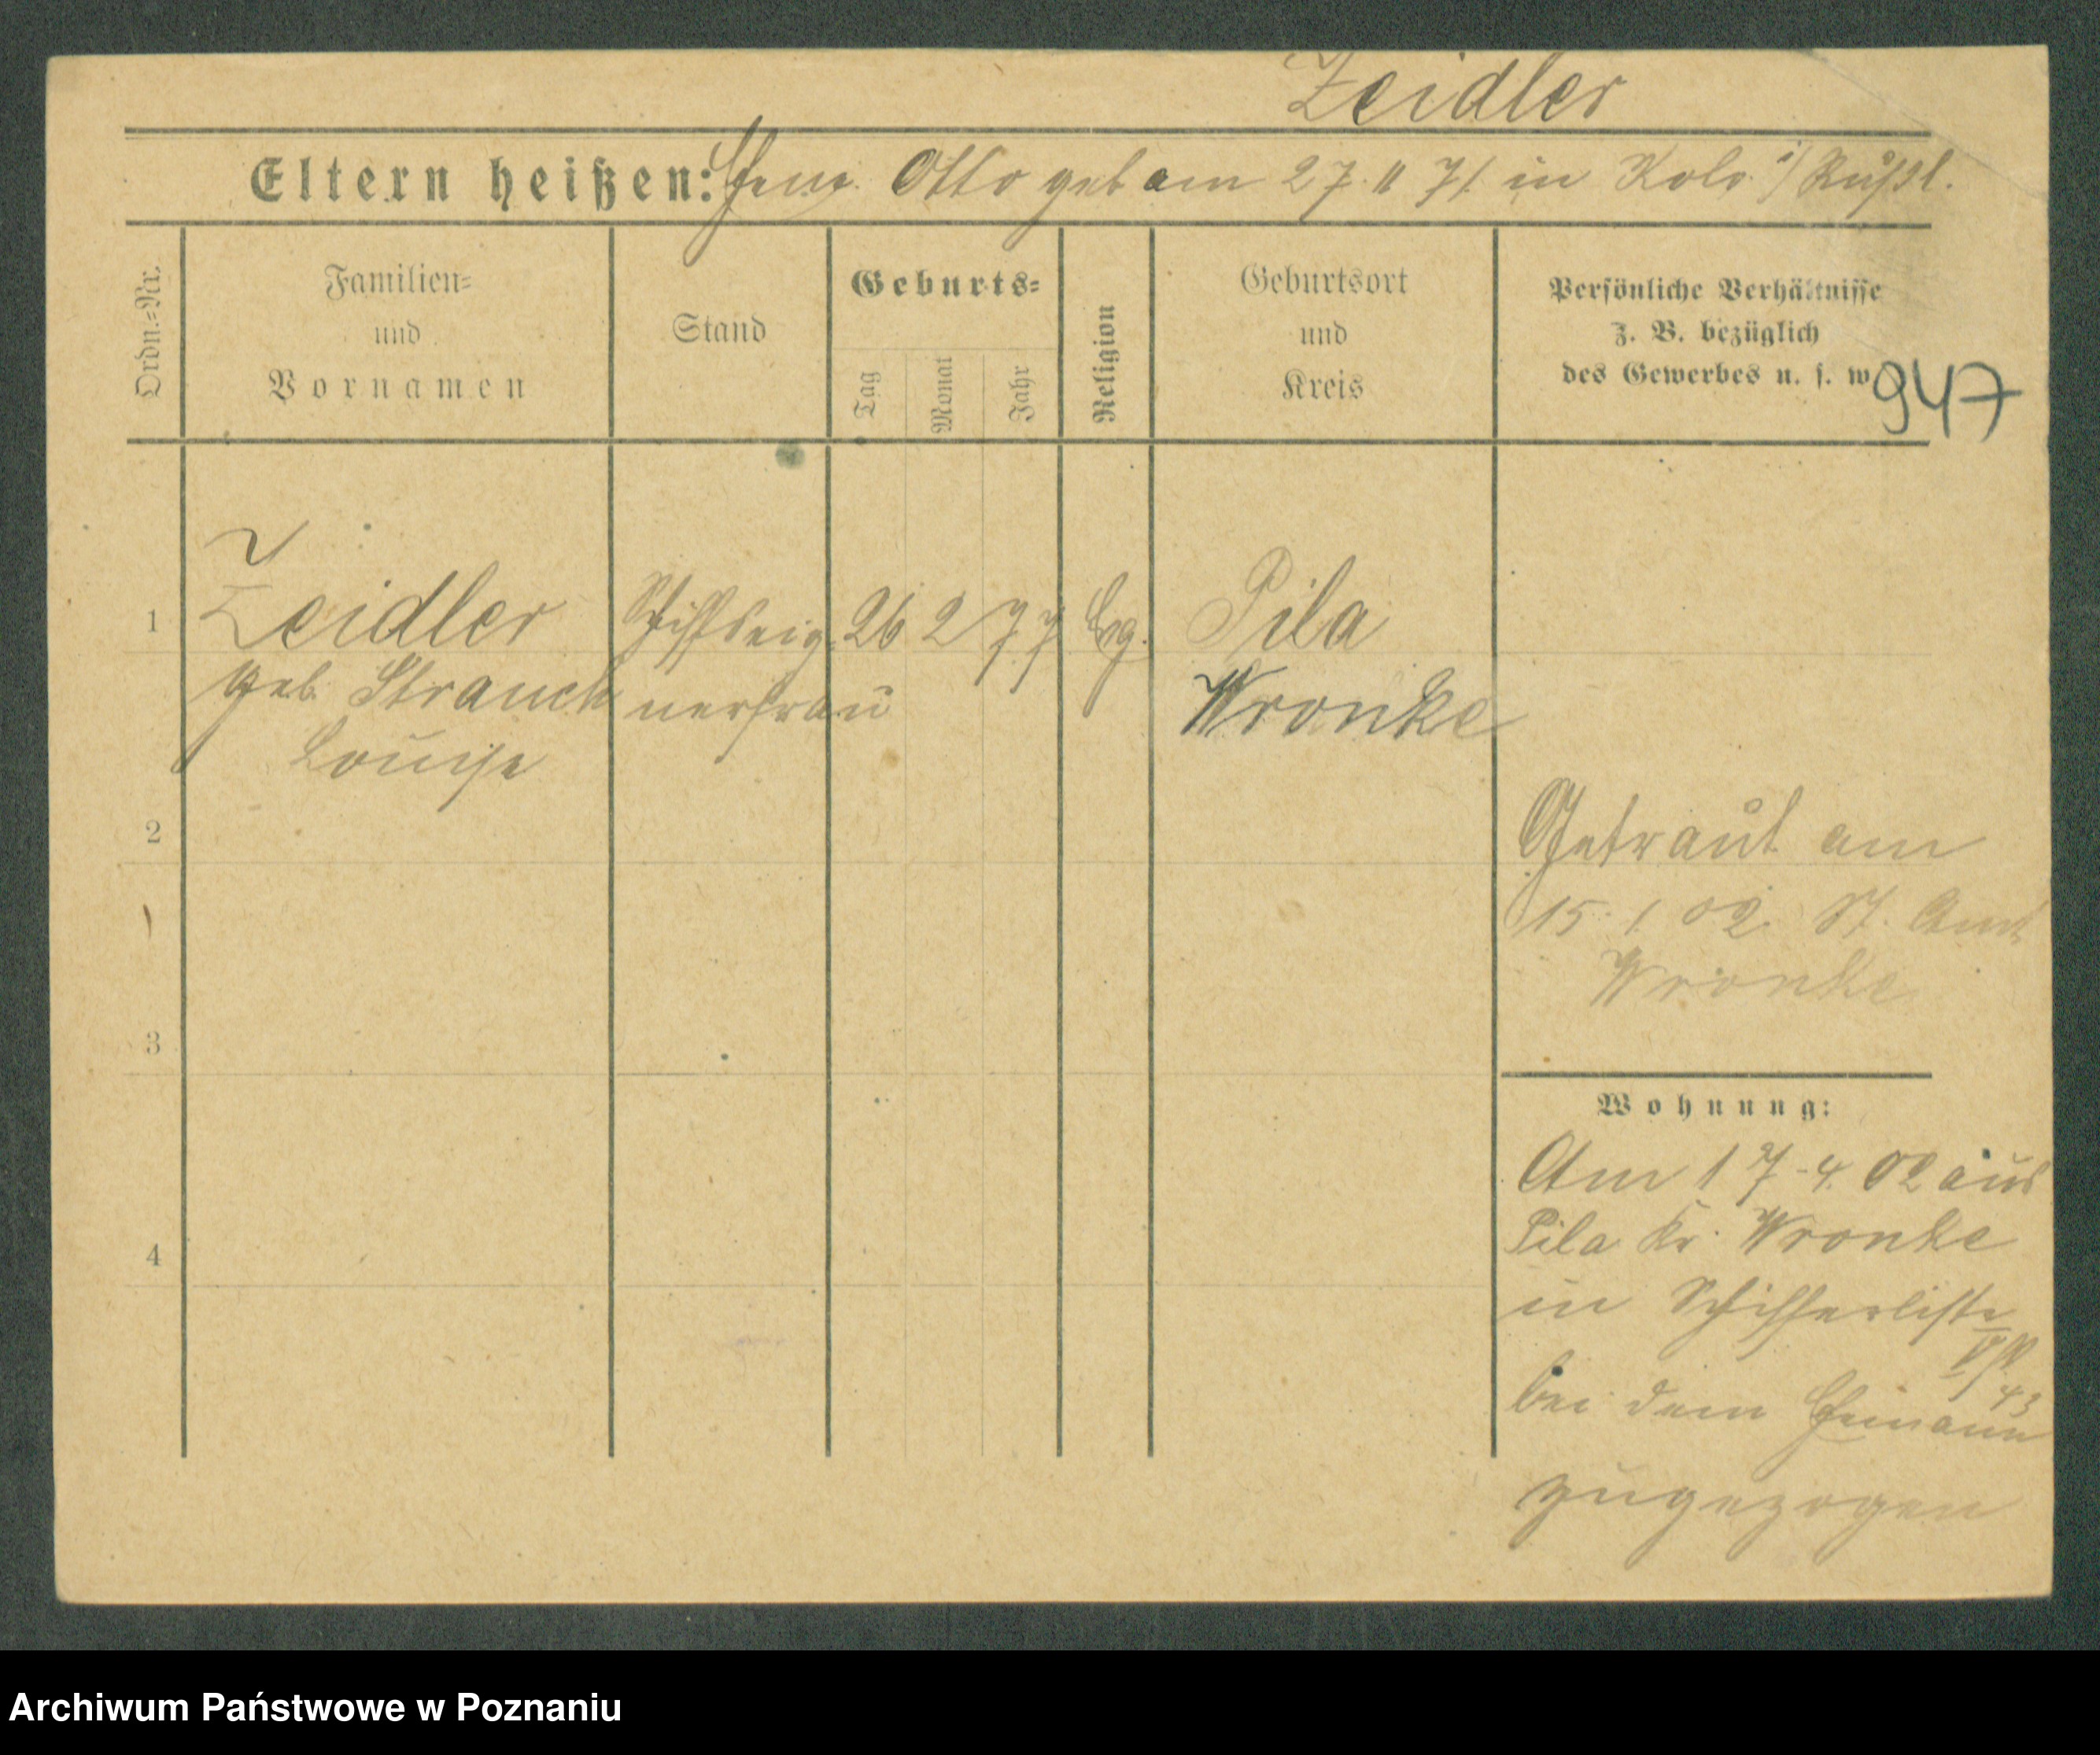 Zeidler
Eltern heißen: Ehem. Otto geb am 27. 11 71. in Kolo i/ Rußl.
Ordn.=Nr.
Familien=
und
Vornamen
Stand
Geburts=
Tag
Monat
Jahr
Religion
Geburtsort
und
Kreis
Persönliche Verhältnisse
z. B. bezüglich
des Gewerbes u. s. w.
947
1
Zeidler
geb. Strauch
Louise
Schiffseig.
nerfrau
26 2 77
Evg.
Pila
Wronke
2
Getraut am
15. 1. 02. St. Amt
Wronke
3
Wohnung:
Am 17-4. 02 aus
Pila Kr. Wronke
in Schifferliste
43
bei dem Ehemann
zugezogen
4
Archiwum Państwowe w Poznaniu